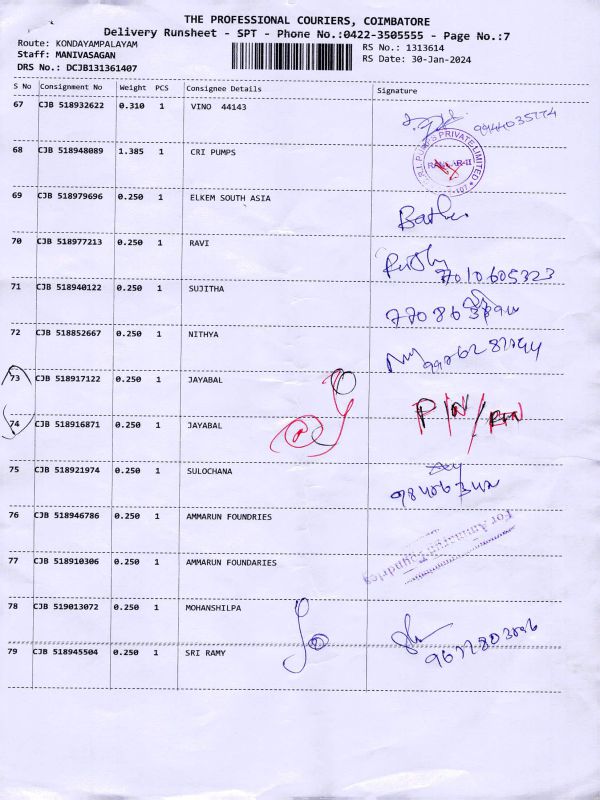 THE PROFESSIONAL COURIERS, COIMBATORE
Delivery Runsheet - SPT - Phone No.:0422-3505555 - Page No.:7
Route: KONDAYAMPALAYAM
Staff: MANIVASAGAN
DRS No.: DCJB131361407
RS No.: 1313614
RS Date: 30-Jan-2024
S No Consignment No Weight PCS Consignee Details Signature
67 CJB 518932622 0.310 1 VINO 44143
68 CJB 518948089 1.385 1 CRI PUMPS
69 CJB 518979696 0.250 1 ELKEM SOUTH ASIA
70 CJB 518977213 0.250 1 RAVI 7010605323
71 CJB 518940122 0.250 1 SUJITHA
72 CJB 518852667 0.250 1 NITHYA
73 CJB 518917122 0.250 1 JAYABAL
74 CJB 518916871 0.250 1 JAYABAL
75 CJB 518921974 0.250 1 SULOCHANA
76 CJB 518946786 0.250 1 AMMARUN FOUNDRIES
77 CJB 518910306 0.250 1 AMMARUN FOUNDARIES
78 CJB 519013072 0.250 1 MOHANSHILPA
79 CJB 518945504 0.250 1 SRI RAMY